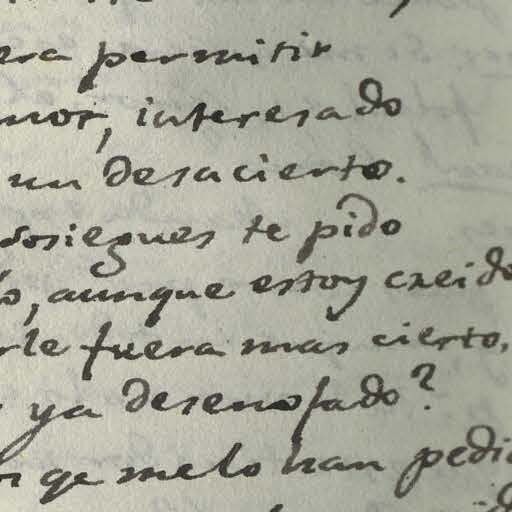 era permitir
mor, interesado
un desacierto.
dosiegues te pido
ó, aunque estoy creido
rle fuera mas cierto,
ya desenofado?
r qe melo han pedi